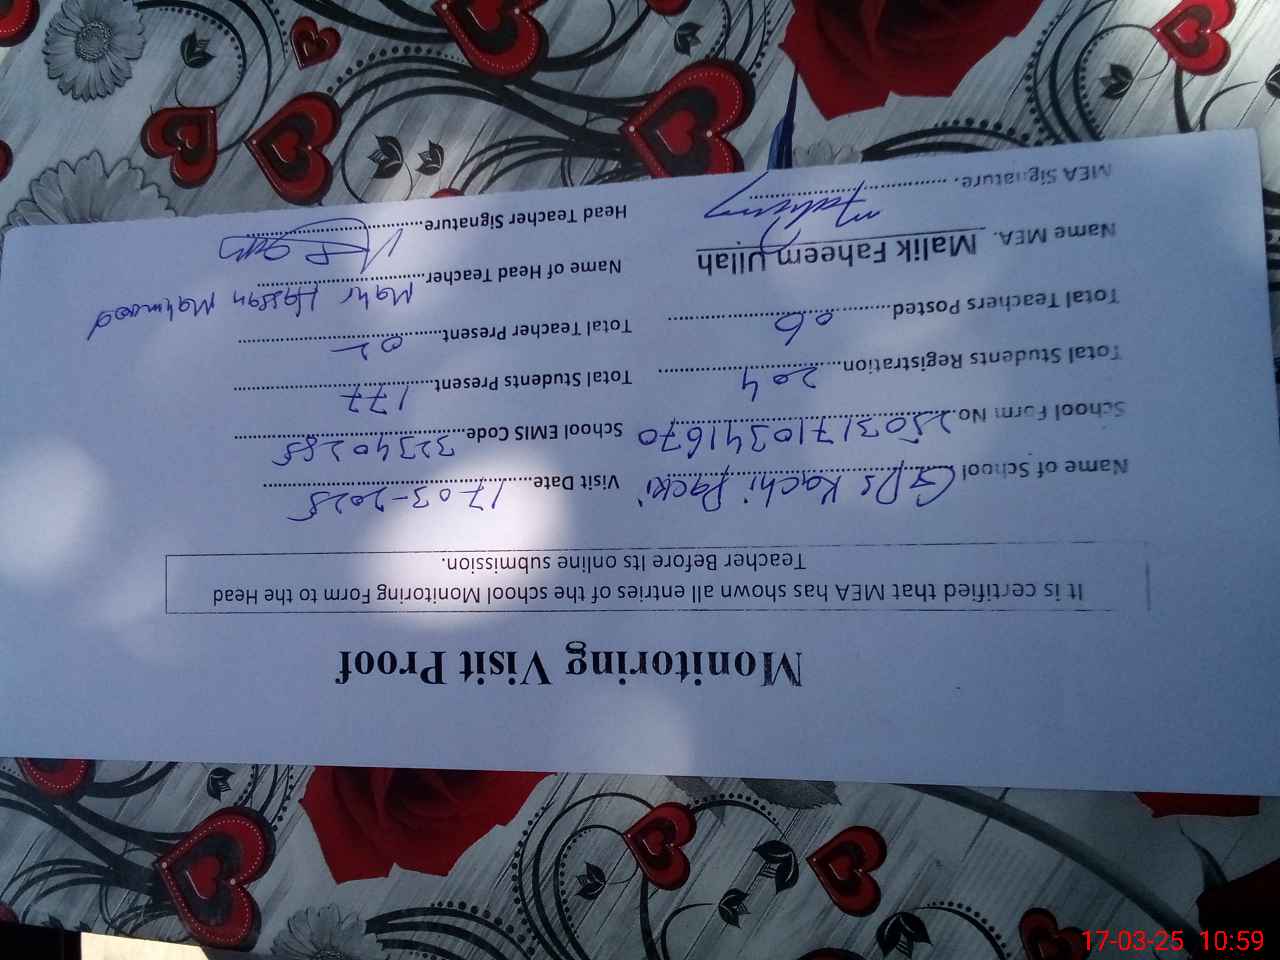 Monitoring Visit Proof
It is certified that MEA has shown all entries of the school Monitoring Form to the Head
Teacher Before Its online submission.
Name of School GPS Kachi Packi Visit Date 17-03-2025
School Form No. 25031710341670 School EMIS Code. 32340285
Total Students Registration 204 Total Students Present 177
Total Teachers Posted 06 Total Teacher Present
Name MEA. Malik Faheem Ullah Name of Head Teacher Mahr Hassan Mahmood
MEA Signature. Head Teacher Signature
17-03-25 10:59